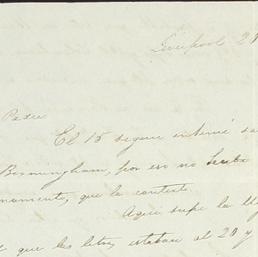 Liverpool 2
Padre
El 15 segun intimé
Birmingham, por eso no
que la conteste.
Aqui supe la
que las letras estaban al 20 y